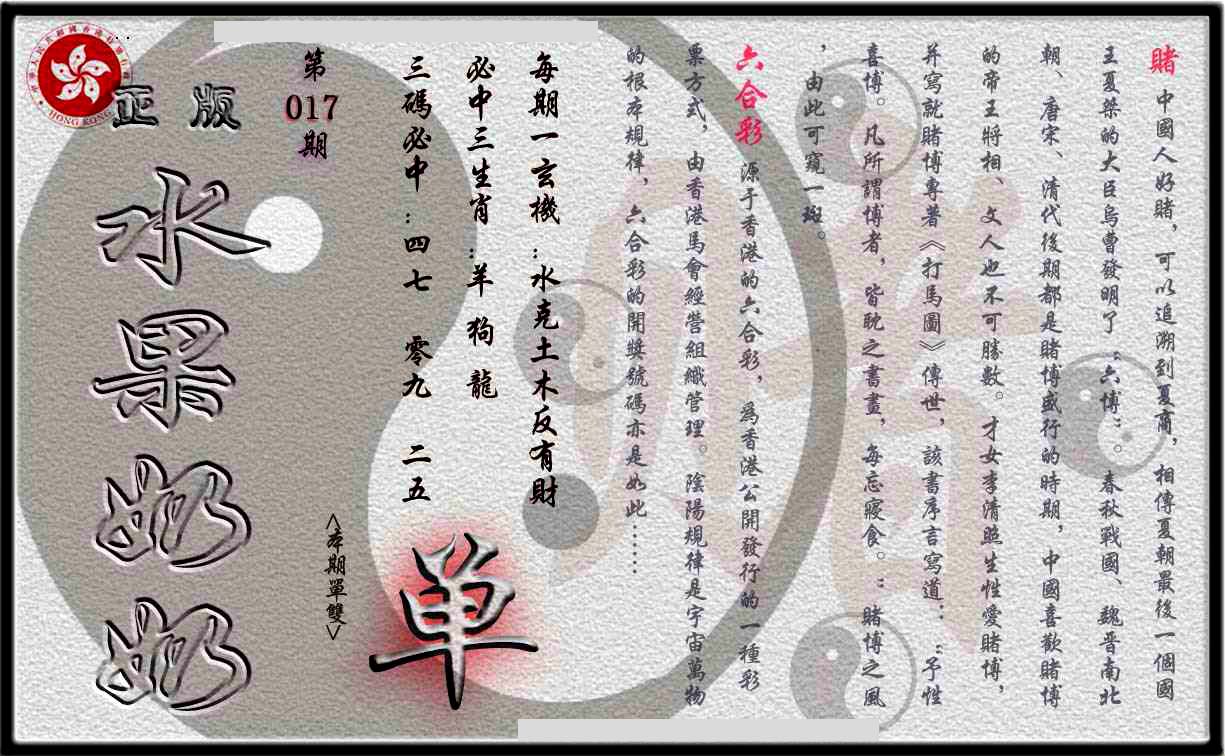 賭 中國人好賭，可以追溯到夏商，相傳夏朝最後一個國
王夏桀的大臣烏曹發明了“六博”。春秋戰國、魏晋南北
朝、唐宋、清代後期都是賭博盛行的時期，中國喜歡賭博
的帝王將相、文人也不可勝數。才女李清照生性愛賭博，
并寫就賭博專著《打馬圖》傳世，該書序言寫道：“予性
喜博。凡所謂博者，皆耽之書晝，每忘寢食。：賭博之風
，由此可窺一斑。
六合彩 源于香港的六合彩，爲香港公開發行的一種彩
票方式，由香港馬會經營組織管理。陰陽規律是宇宙萬物
的根本規律，六合彩的開獎號碼亦是如此……
每期一玄機：水克土木反有財
必中三生肖：羊 狗 龍
三碼必中：四七 零九 二五
單
<本期單雙>
第
017
期
正版
水果奶奶
HONG KONG